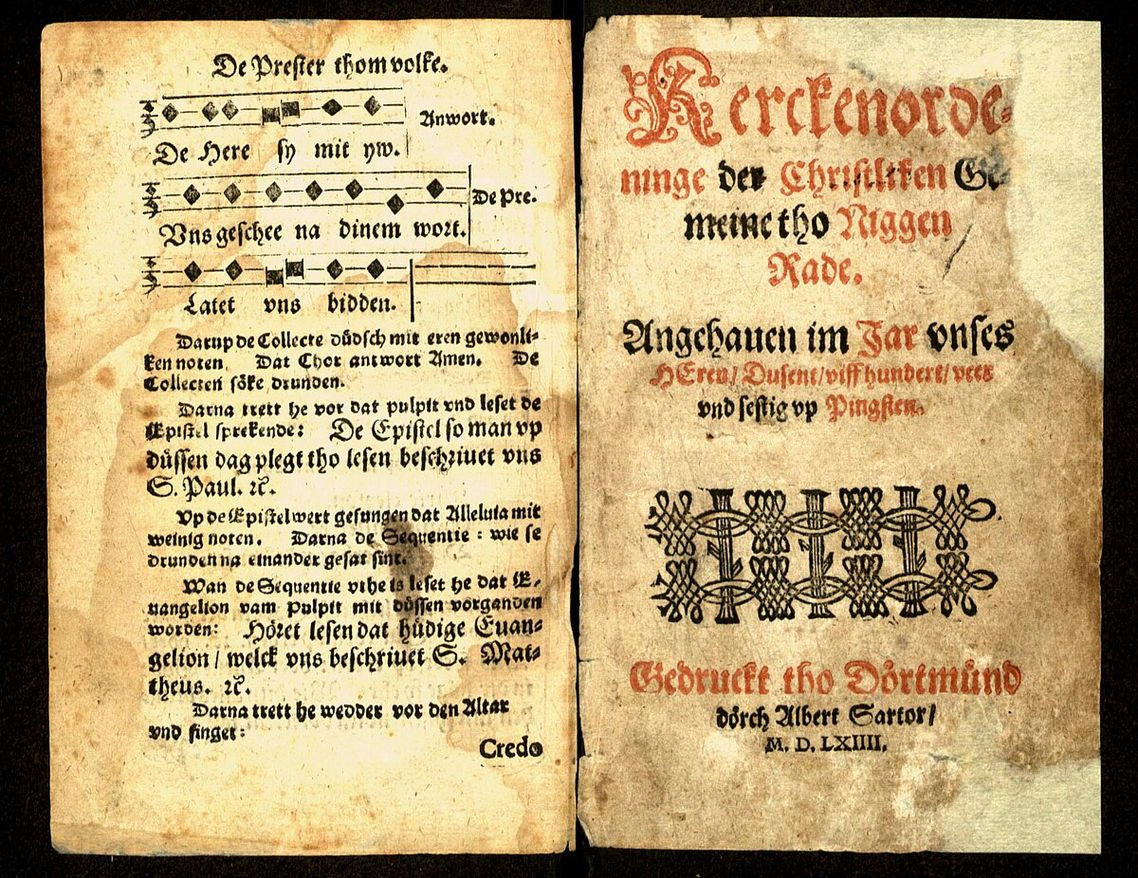 De Prester thom volke.
Anwort.
De Here sy mit yw.
De Pre.
Vns geschee na dinem wort.
Latet vns bidden.
Darup de Collecte düdsch mit eren gewonli-
ken noten. Dat Chor antwort Amen. De
Collecten söke drunden.
Darna trett he vor dat pulpit vnd leset de
Epistel sprekende: De Epistel so man vp
düssen dag plegt tho lesen beschriuet vns
S. Paul. ꝛc.
Vp de Epistel wert gesungen dat Alleluia mit
weinig noten. Darna de Sequentie: wie se
drunden na einander gesat sint.
Wan de Sequentie vthe is leset he dat E-
uangelion vam Pulpit mit düssen vorganden
worden: Höret lesen dat hüdige Euan-
gelion / welck vns beschriuet S. Mat-
theus. ꝛc.
Darna trett he wedder vor den Altar
vnd singet:
Credo
Kerckenorde-
ninge der Christliken Ge-
meine tho Niggen
Rade.
Angehauen im Jar vnses
HEren / Dusent / viff hundert / veer
vnd sestig vp Pingsten.
Gedruckt tho Dörtmünd
dörch Albert Sartor /
M. D. LXIIII.